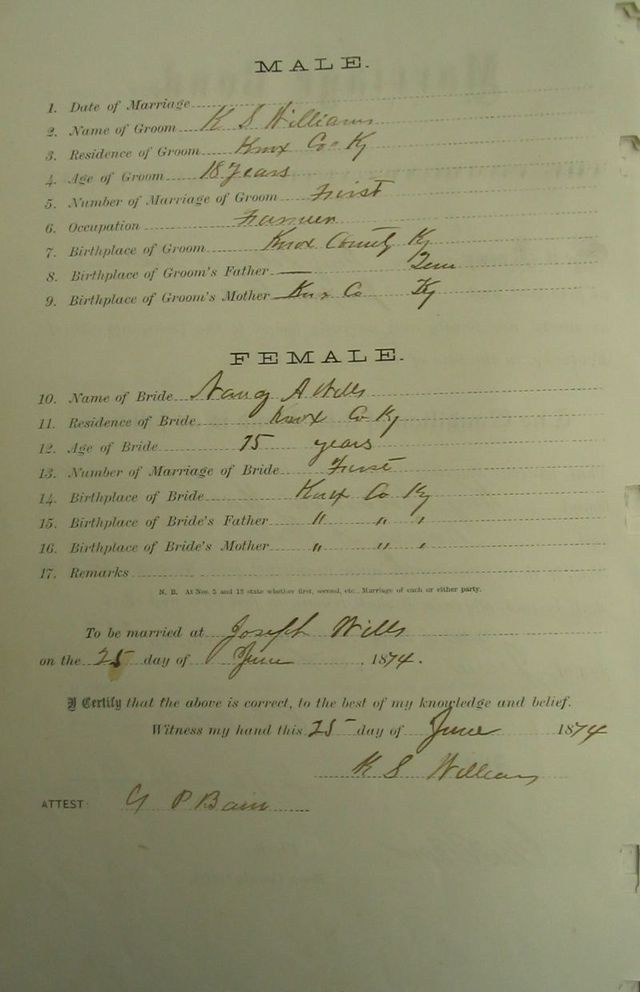 MALE.
1. Date of Marriage
2. Name of Groom K S Williams
3. Residence of Groom Knox Co Ky
4. Age of Groom 18 years
5. Number of Marriage of Groom First
6. Occupation Farmer
7. Birthplace of Groom Knox County Ky
8. Birthplace of Groom's Father — Tenn
9. Birthplace of Groom's Mother Knox Co Ky
FEMALE.
10. Name of Bride Nancy A Wills
11. Residence of Bride Knox Co Ky
12. Age of Bride 15 years
13. Number of Marriage of Bride First
14. Birthplace of Bride Knox Co Ky
15. Birthplace of Bride's Father " " "
16. Birthplace of Bride's Mother " " "
17. Remarks
N. B. At Nos. 5 and 13 state whether first, second, etc., Marriage of each or either party.
To be married at Joseph Wills
on the 25 day of June, 1874.
I Certify that the above is correct, to the best of my knowledge and belief.
Witness my hand this 25 day of June 1874
K S Williams
ATTEST: G P Bain